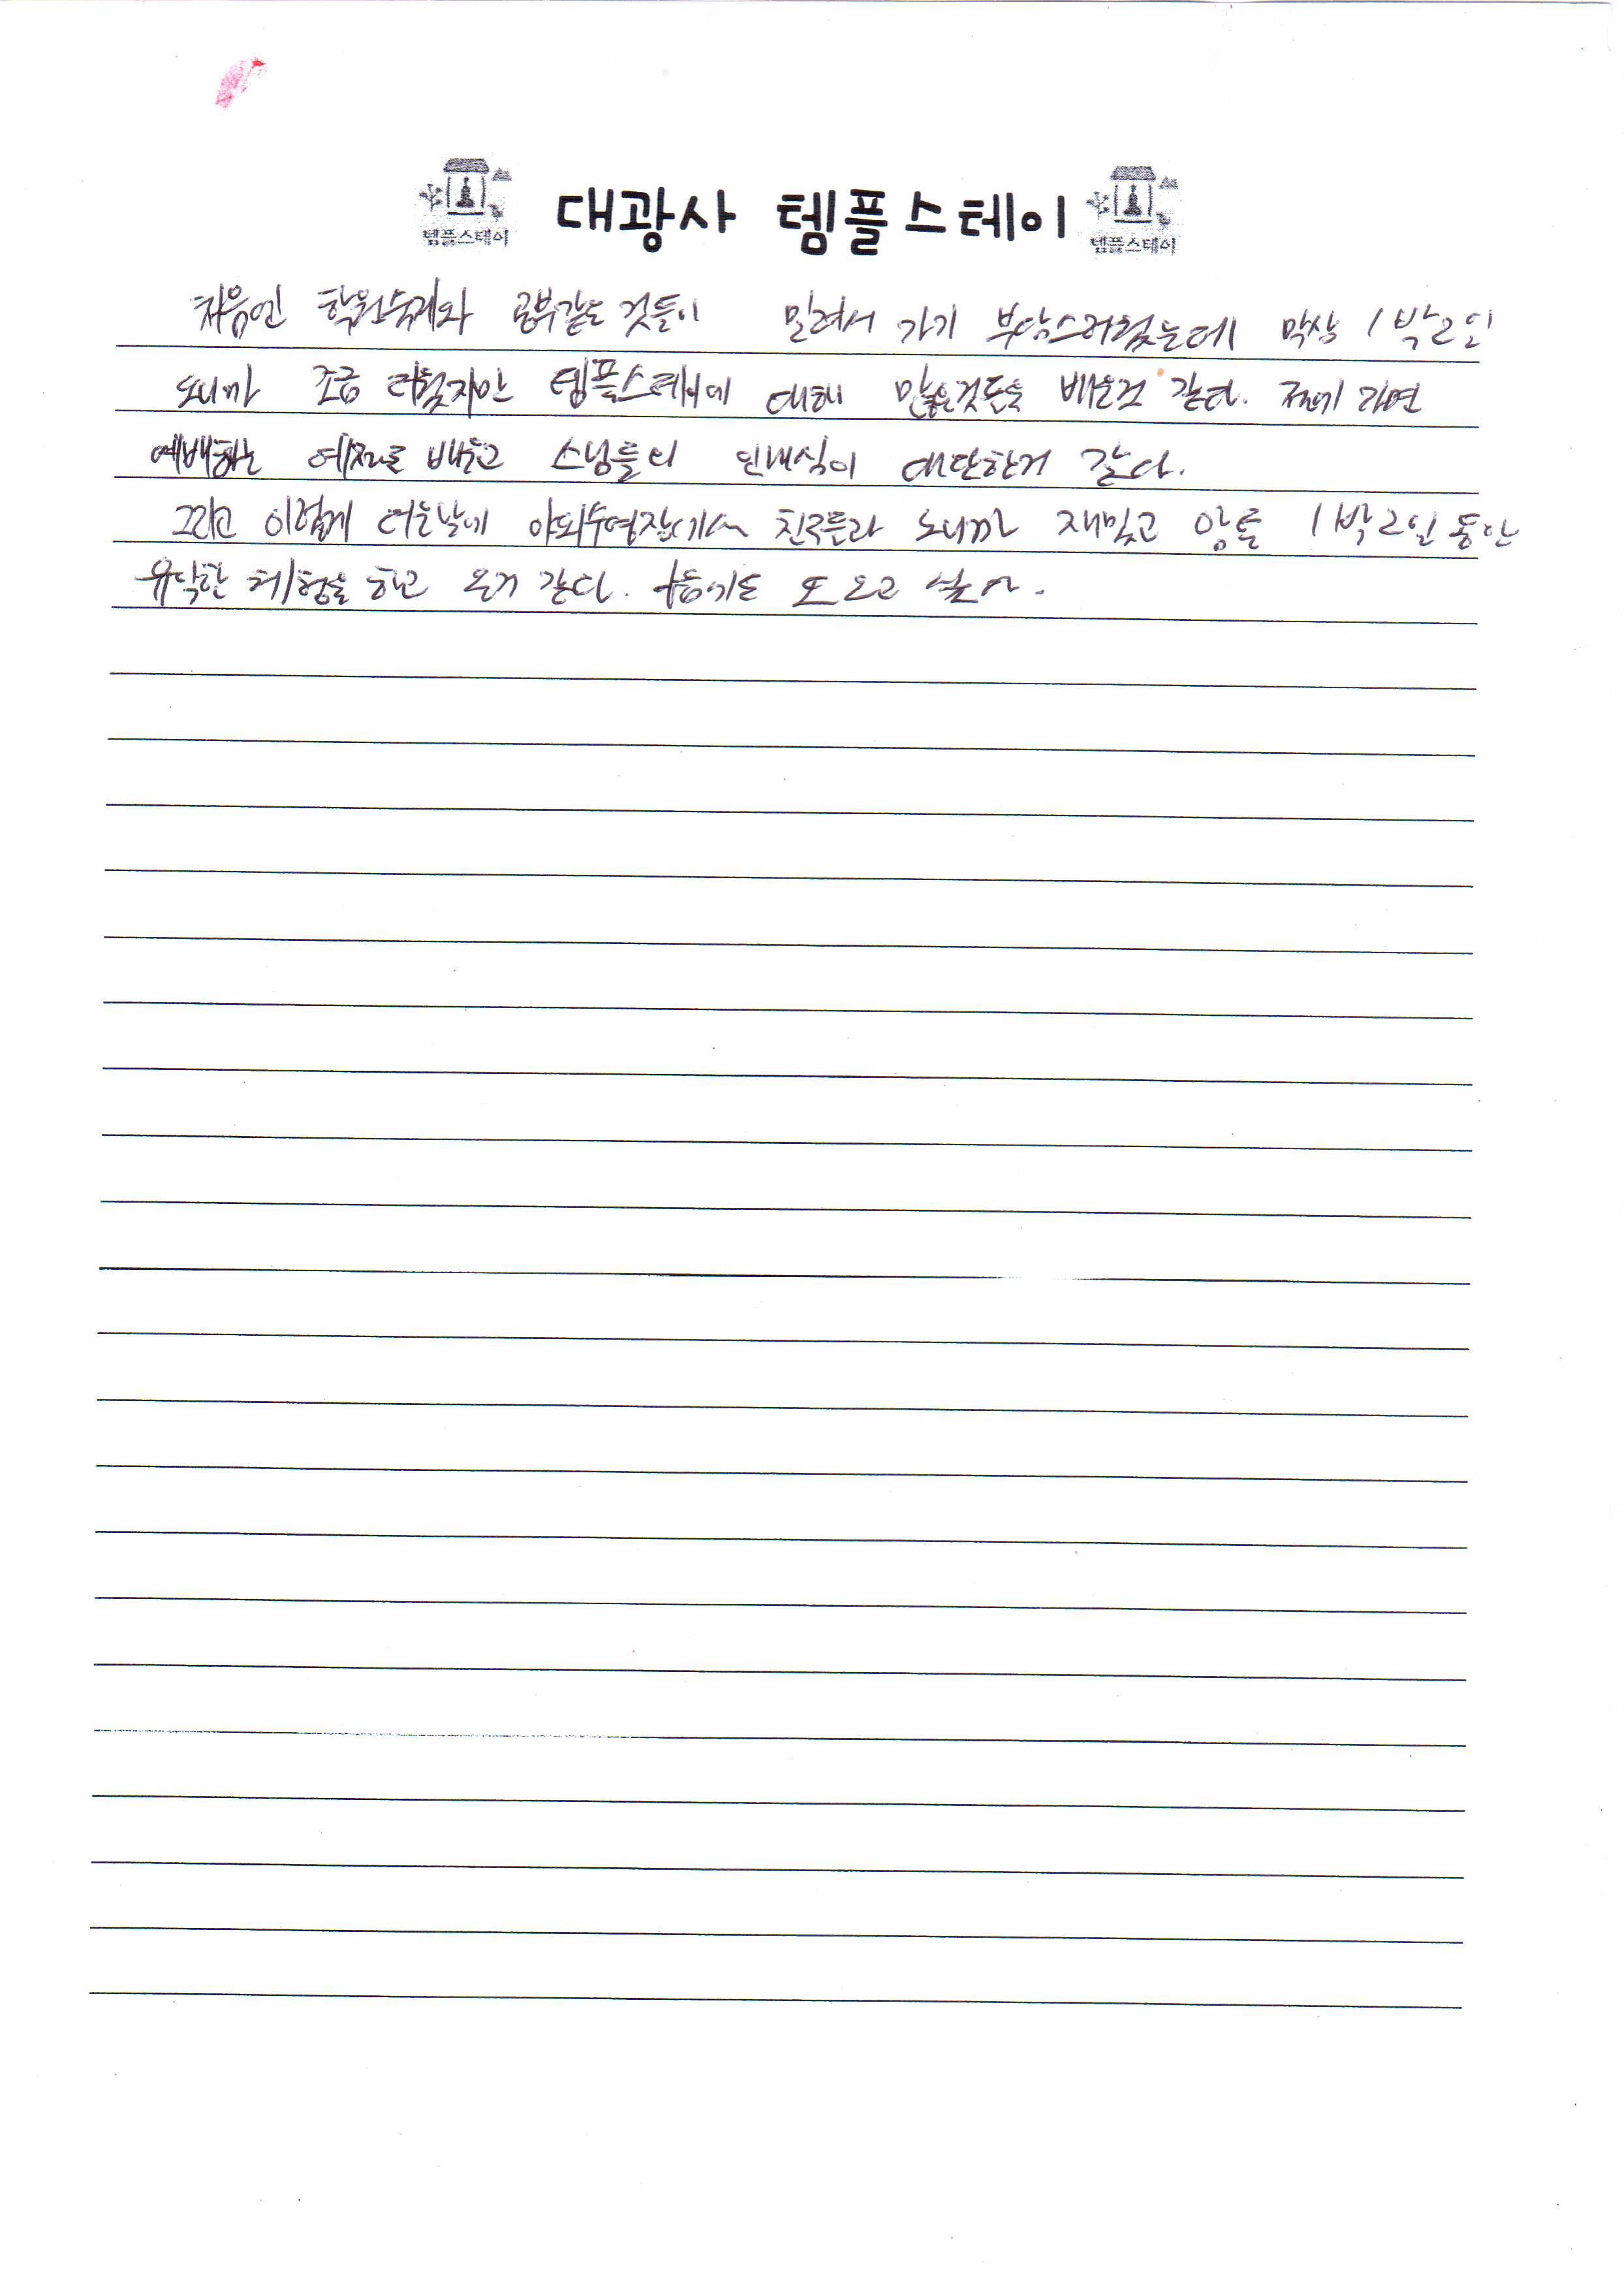 템플스테이 대광사 템플스테이 템플스테이
처음엔 학원숙제와 공부같은 것들이 밀려서 가기 부담스러웠는데 막상 1박2일
되니까 조금 더웠지만 템플스테이에 대해 많은것들을 배운것 같다.
예배하는 배우고 스님들의 인내심이 대단한거 같다.
그리고 이렇게 더운날에 야외수영장에서 친구들과 노니까 재밌고 1박2일동안
유익한 체험을 하고 온거 같다. 또 오고 싶다.